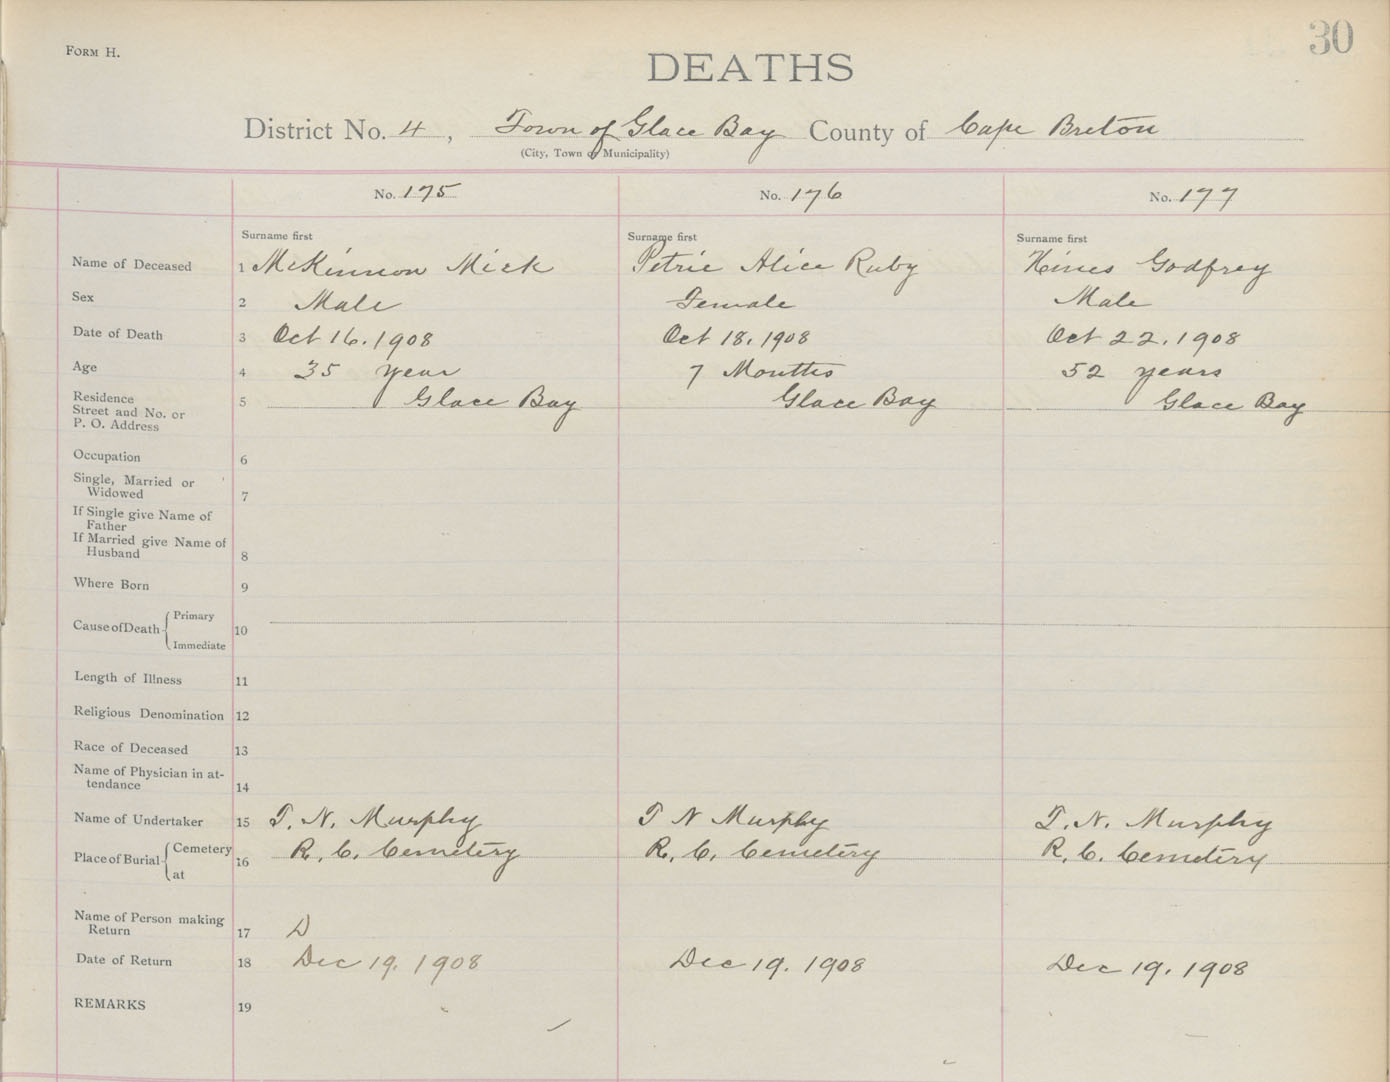 30
FORM H.
DEATHS
District No. 4, Town of Glace Bay County of Cape Breton
(City, Town or Municipality)
No. 175 No. 176 No. 177
Surname first Surname first Surname first
Name of Deceased 1 McKinnon Mick Petrie Alice Ruby Hines Godfrey
Sex 2 Male Female Male
Date of Death 3 Oct 16. 1908 Oct 18. 1908 Oct 22. 1908
Age 4 35 year 7 Months 52 years
Residence
Street and No. or 5 Glace Bay Glace Bay Glace Bay
P. O. Address
Occupation 6
Single, Married or
Widowed 7
If Single give Name of
Father
If Married give Name of
Husband 8
Where Born 9
Primary
Cause of Death 10
Immediate
Length of Illness 11
Religious Denomination 12
Race of Deceased 13
Name of Physician in at-
tendance 14
Name of Undertaker 15 T. N. Murphy T N Murphy T. N. Murphy
Cemetery R. C. Cemetery R. C. Cemetery R. C. Cemetery
Place of Burial 16
at
Name of Person making
Return 17 D
Date of Return 18 Dec 19. 1908 Dec 19. 1908 Dec 19. 1908
REMARKS 19